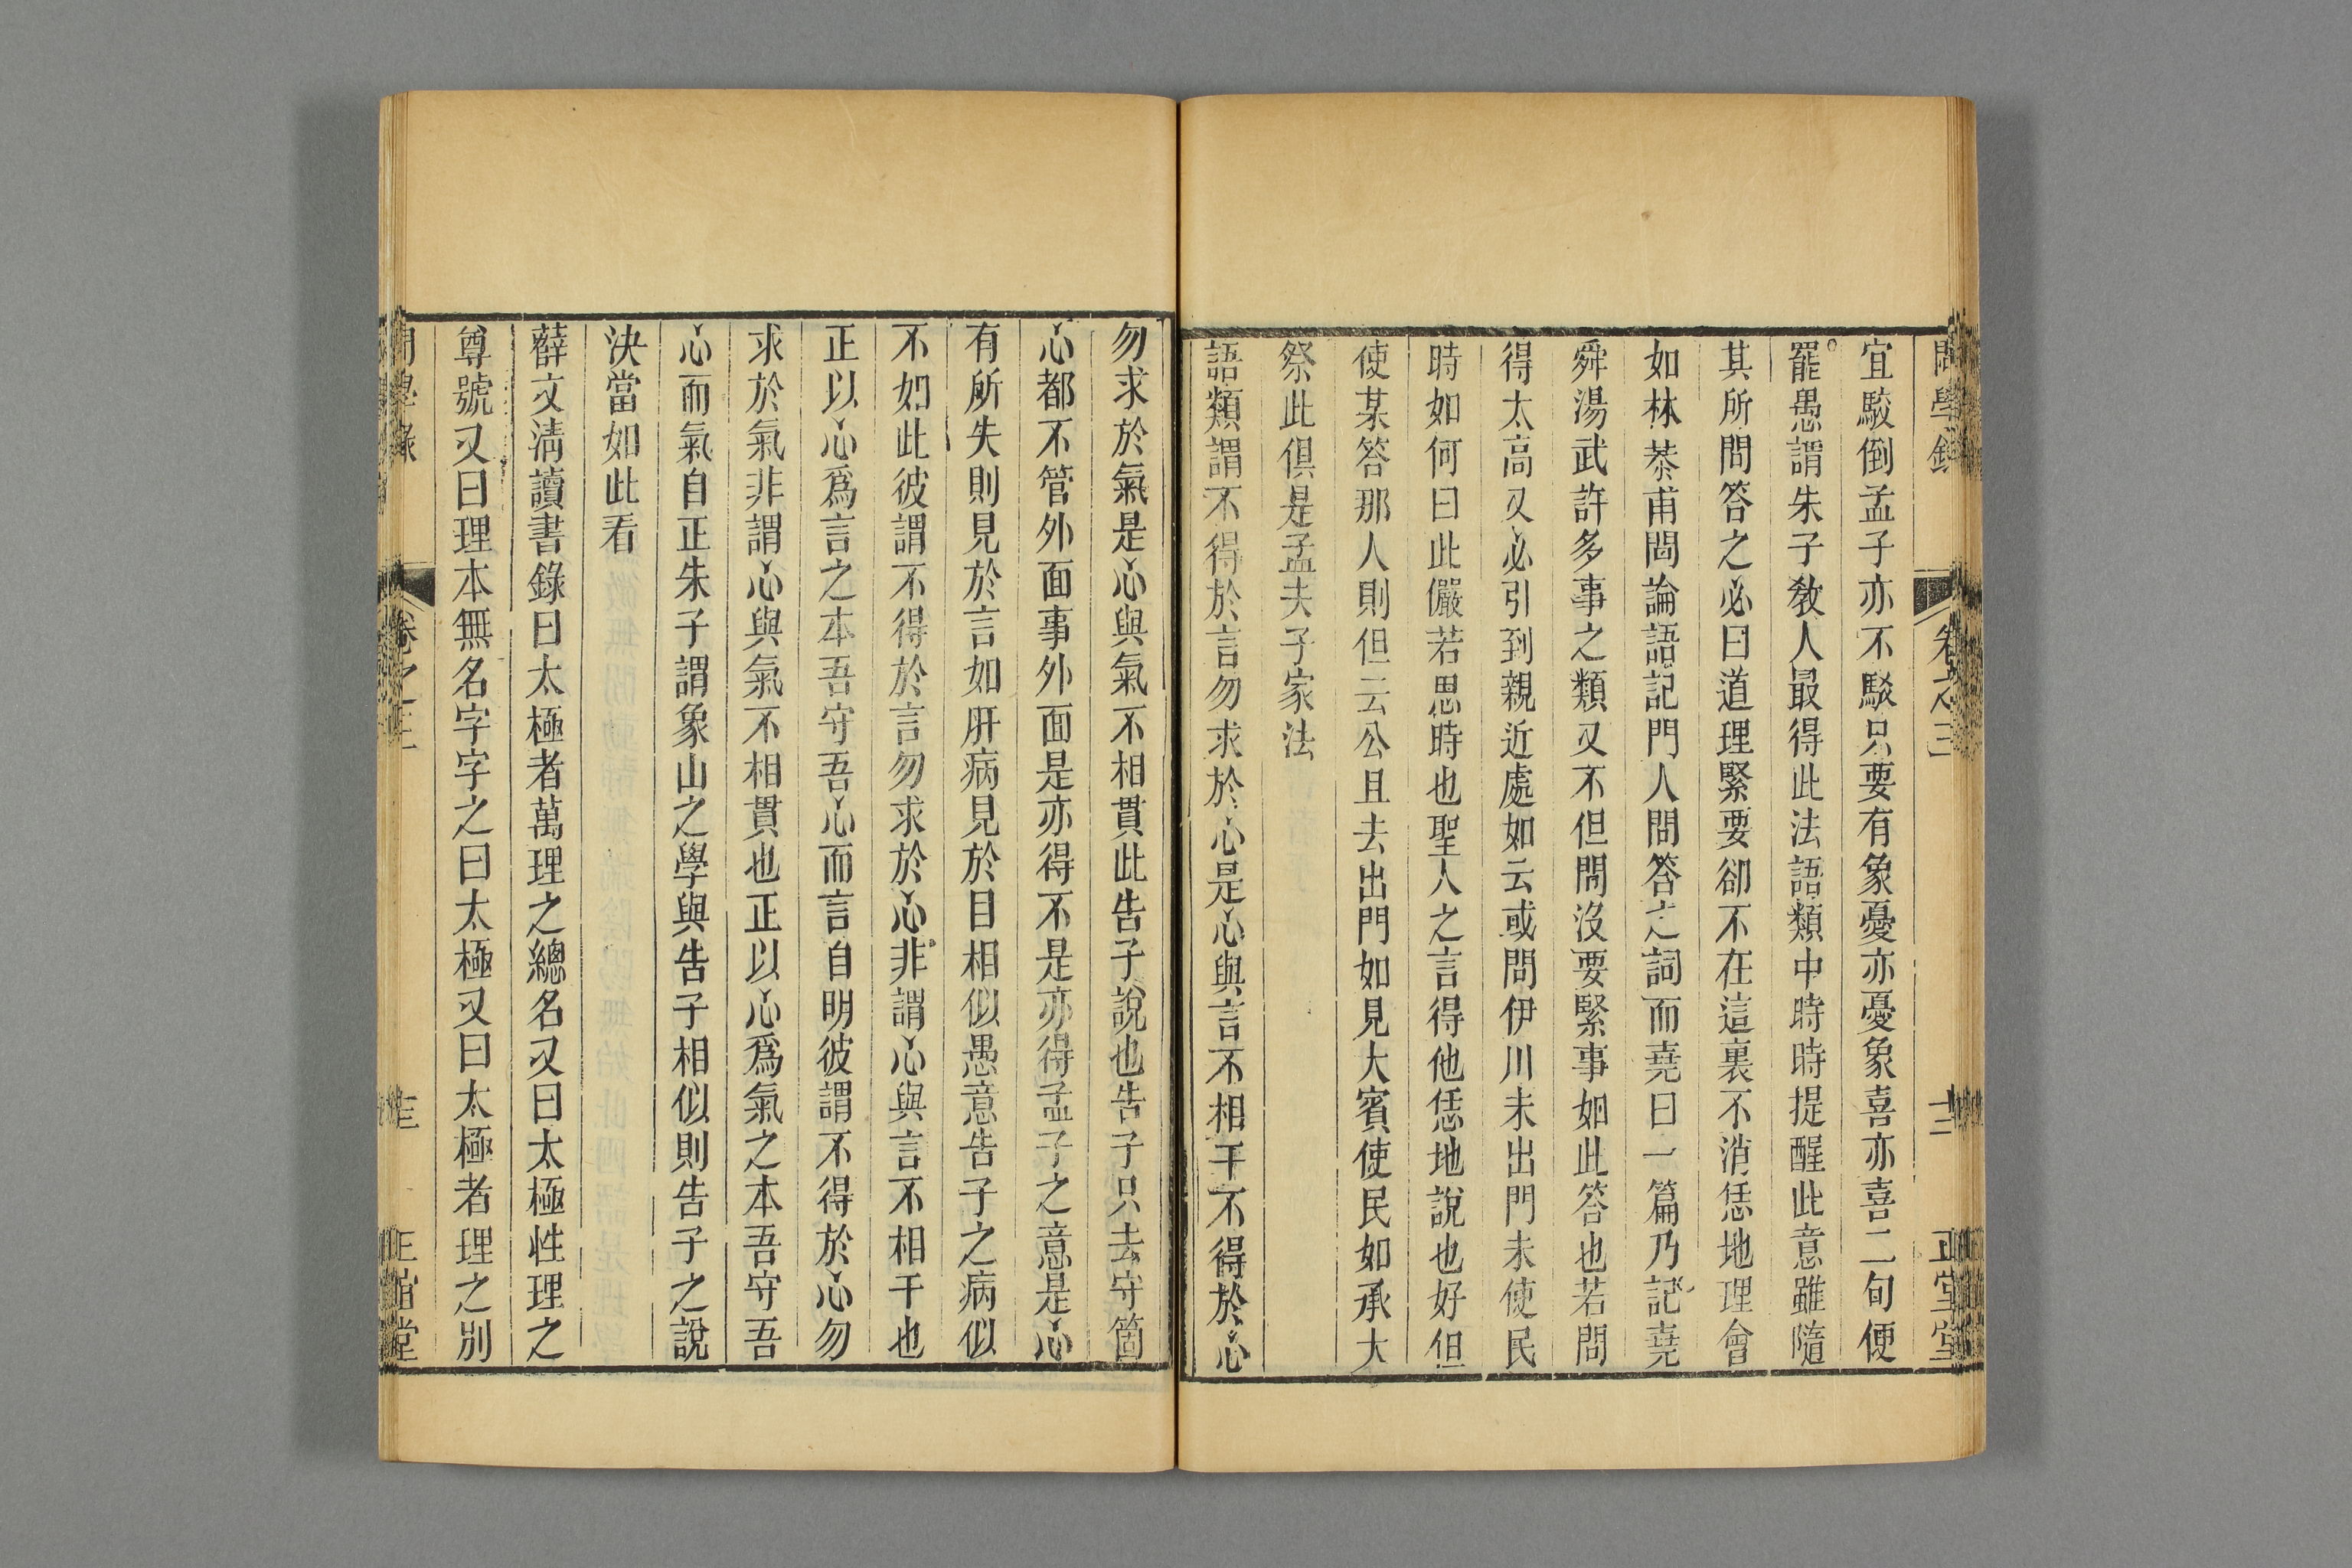 問學錄 卷之三 十二 正堂
宜駁倒孟子亦不駁只要有象憂亦憂象喜亦喜二句便
罷愚謂朱子敎人最得此法語類中時時提醒此意雖隨
其所問答之必曰道理緊要卻不在這裏不消恁地理會
如林恭甫問論語記門人問答之詞而堯曰一篇乃記堯
舜湯武許多事之類又不但問沒要緊事如此答也若問
得太高又必引到親近處如云或問伊川未出門未使民
時如何曰此儼若思時也聖人之言得他恁地說也好但
使某答那人則但云公且去出門如見大賓使民如承大
祭此俱是孟夫子家法
語類謂不得於言勿求於心是心與言不相干不得於心
勿求於氣是心與氣不相貫此告子說也告子只去守箇
心都不管外面事外面是亦得不是亦得孟子之意是心
有所失則見於言如肝病見於目相似愚意告子之病似
不如此彼謂不得於言勿求於心非謂心與言不相干也
正以心爲言之本吾守吾心而言自明彼謂不得於心勿
求於氣非謂心與氣不相貫也正以心爲氣之本吾守吾
心而氣自正朱子謂象山之學與告子相似則告子之說
決當如此看
薛文淸讀書錄曰太極者萬理之總名又曰太極性理之
尊號又曰理本無名字字之曰太極又曰太極者理之別
問學錄 卷之三 正誼堂